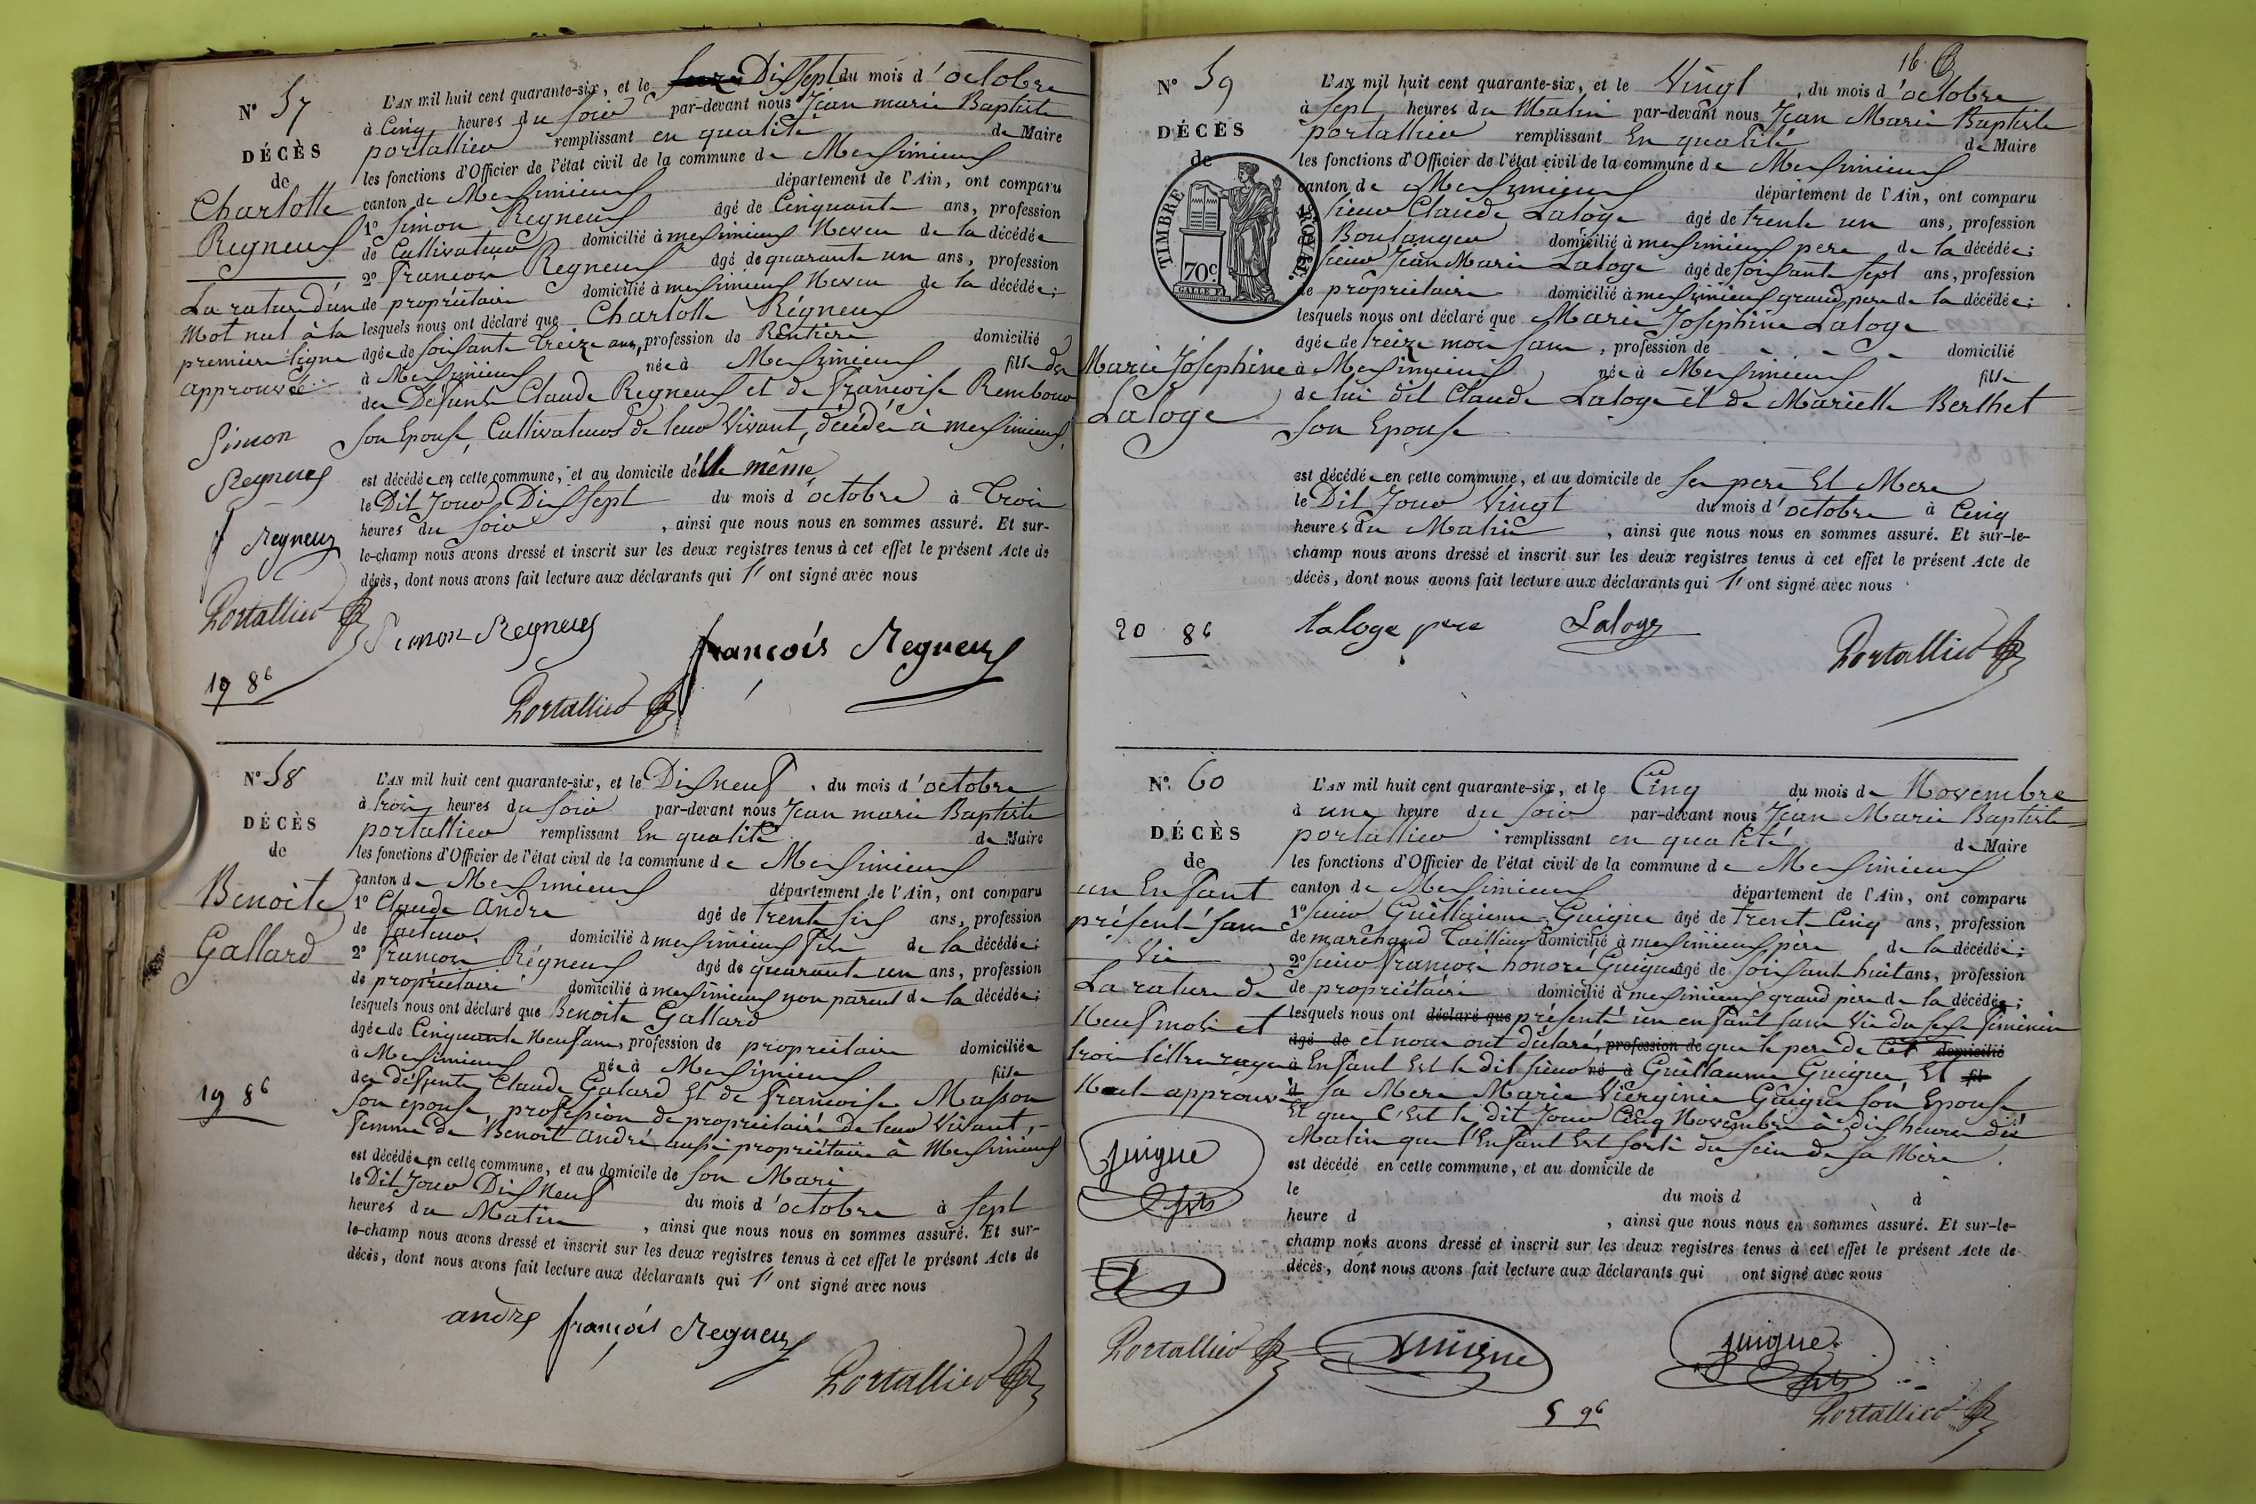 N° 57
DÉCÈS
de
Charlotte
Regneux
La rature d'un
Mot nul à la
premiere ligne
approuvée
Simon
Regneux
f Regneux
Portallier
19 8ᵇ
L'AN mil huit cent quarante-six, et le Dix Sept du mois d'octobre
à Cinq heures du soir par-devant nous Jean marie Baptiste
portallier remplissant en qualité de Maire
les fonctions d'Officier de l'état civil de la commune de Meximieux
canton de Meximieux département de l'Ain, ont comparu
1° Simon Regneux âgé de Cinquante ans, profession
de Cultivateur domicilié à meximieux Neveu de la décédée
2° francois Regneux âgé de quarante un ans, profession
de propriétaire domicilié à meximieux Neveu de la décédée;
lesquels nous ont déclaré que Charlotte Régneux
âgée de soixante Treize ans, profession de Rentière domicilié
à Meximieux née à Meximieux fille des
des Defunts Claude Regneux et de francoise Rembour
son Epouse, Cultivateurs de leur Vivant, décédés à meximieux,
est décédée en cette commune, et au domicile d'elle même
le Dit Jour Dix Sept du mois d'octobre à trois
heures du soir, ainsi que nous nous en sommes assuré. Et sur-
le-champ nous avons dressé et inscrit sur les deux registres tenus à cet effet le présent Acte de
décès, dont nous avons fait lecture aux déclarants qui l'ont signé avec nous
Simon Regneux
françois Regneux
Portallier
N° 58
DÉCÈS
de
Benoite
Gallard
19 8ᵇ
L'AN mil huit cent quarante-six, et le Dix neuf, du mois d'octobre
à trois heures du soir par-devant nous Jean marie Baptiste
portallier remplissant En qualité de Maire
les fonctions d'Officier de l'état civil de la commune de Meximieux
canton de Meximieux département de l'Ain, ont comparu
1° Claude andre âgé de trente six ans, profession
de facteur, domicilié à meximieux fils de la décédée;
2° francois Régneux âgé de quarante un ans, profession
de propriétaire domicilié à meximieux non parent de la décédée;
lesquels nous ont déclaré que Benoite Gallard
âgée de Cinquante Neuf ans, profession de propriétaire domiciliée
à Meximieux née à Meximieux fille
des défunts Claude Galard Et de francoise Masson
son epouse, profession de propriétaire de leur Vivant,
femme de Benoit andré aussi propriétaire à Meximieux
est décédée en cette commune, et au domicile de son Mari
le Dit Jour Dix Neuf du mois d'octobre à sept
heures du Matin, ainsi que nous nous en sommes assuré. Et sur-
le-champ nous avons dressé et inscrit sur les deux registres tenus à cet effet le présent Acte de
décès, dont nous avons fait lecture aux déclarants qui l'ont signé avec nous
andre françois Regneux
Portallier
16
N° 59
DÉCÈS
de
TIMBRE ROYAL.
70c
GALLE F.
Marie Joséphine
Laloge
20 8ᵇ
L'AN mil huit cent quarante-six, et le Vingt, du mois d'octobre
à sept heures du Matin par-devant nous Jean Marie Baptiste
portallier remplissant En qualité de Maire
les fonctions d'Officier de l'état civil de la commune de Meximieux
canton de Meximieux département de l'Ain, ont comparu
1° sieur Claude Laloge âgé de trente un ans, profession
de Boulanger domicilié à meximieux pere de la décédée;
sieur Jean Marie Laloge âgé de soixante sept ans, profession
de propriétaire domicilié à meximieux grand pere de la décédée;
lesquels nous ont déclaré que Marie Josephine Laloge
âgée de treize mois, profession de domicilié
à Meximieux née à Meximieux fille
de lui dit Claude Laloge et de Mariette Berthet
son Epouse
est décédée en cette commune, et au domicile de ses pere Et Mere
le Dit Jour Vingt du mois d'octobre à Cinq
heures du Matin, ainsi que nous nous en sommes assuré. Et sur-le-
champ nous avons dressé et inscrit sur les deux registres tenus à cet effet le présent Acte de
décès, dont nous avons fait lecture aux déclarants qui l'ont signé avec nous
laloge pere Laloge
Portallier
N° 60
DÉCÈS
de
un Enfant
présenté sans
Vie
La rature de
Neuf mots et
trois lettres rayés
Nuls approuvée
guigue
Portallier
L'AN mil huit cent quarante-six, et le Cinq du mois de Novembre
à une heure du soir par-devant nous Jean Marie Baptiste
portallier remplissant en qualité de Maire
les fonctions d'Officier de l'état civil de la commune de Meximieux
canton de Meximieux département de l'Ain, ont comparu
1° sieur Guillaume Guigue âgé de trente Cinq ans, profession
de marchand Tailleur domicilié à meximieux père de la décédée;
2° sieur francois honoré Guigue âgé de soixante huit ans, profession
de propriétaire domicilié à meximieux grand père de la décédée;
lesquels nous ont déclaré que présenté un enfant sans Vie du sexe féminin
âgé de et nous ont déclaré, profession de que le pere de cet domicilié
à Enfant Est le dit sieur né à Guillaume Guigue, Et fil
d sa Mere Marie Vierginie Guigue son Epouse
Et que C'Est le dit Jour Cinq Novembre à dix heures du
Matin que l'Enfant Est sorti du sein de sa Mère.
est décédé en cette commune, et au domicile de
le du mois d à
heure d , ainsi que nous nous en sommes assuré. Et sur-le-
champ nous avons dressé et inscrit sur les deux registres tenus à cet effet le présent Acte de
décès, dont nous avons fait lecture aux déclarants qui ont signé avec nous
guigue guigue
5 9ᵇ
Portallier